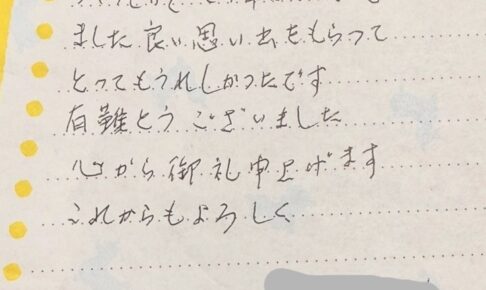 ました良い思い出をもらって
とってもうれしかったです
有難とうございました
心から御礼申上げます
これからもよろしく